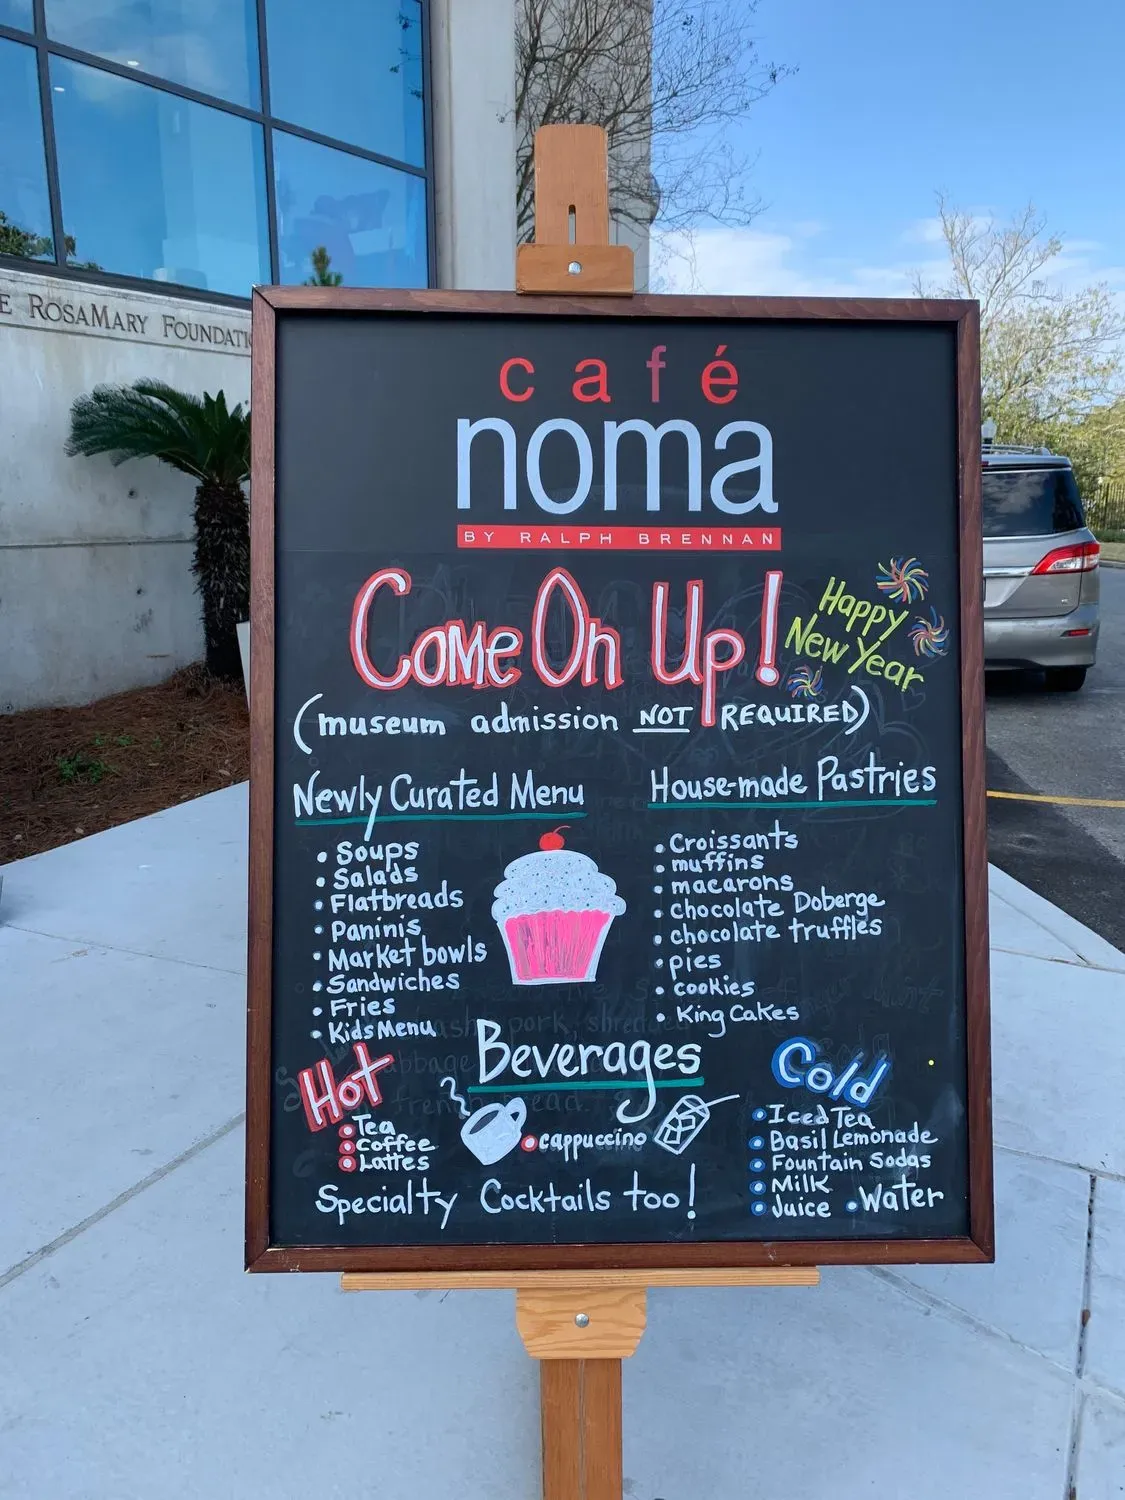 E ROSAMARY FOUNDATI
café
noma
BY RALPH BRENNAN
Come On Up!
Happy
New Year
(museum admission NOT REQUIRED)
Newly Curated Menu
• Soups
• Salads
• Flatbreads
• Paninis
• Market bowls
• Sandwiches
• Fries
• Kids Menu
House-made Pastries
• Croissants
• muffins
• macarons
• chocolate Doberge
• chocolate truffles
• pies
• cookies
• King Cakes
Beverages
Hot
• Tea
• Coffee
• Lattes
• cappuccino
Cold
• Iced Tea
• Basil Lemonade
• Fountain Sodas
• Milk
• Juice • Water
Specialty Cocktails too!